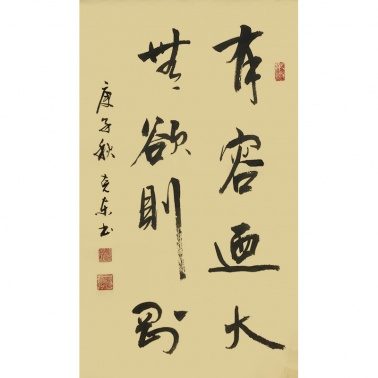 有容迺大
無欲則剛
庚子秋克東书